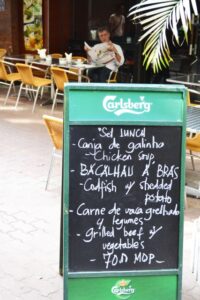 Carlsberg
Set LUNCH
- Canja de galinha
- Chicken soup
- BACALHAU À BRÁS
- Codfish w/ shredded
potato
- Carne de vaca grelhado
y legumes
- grilled beef w/
vegetables
- 70Đ MOP -
Carlsberg